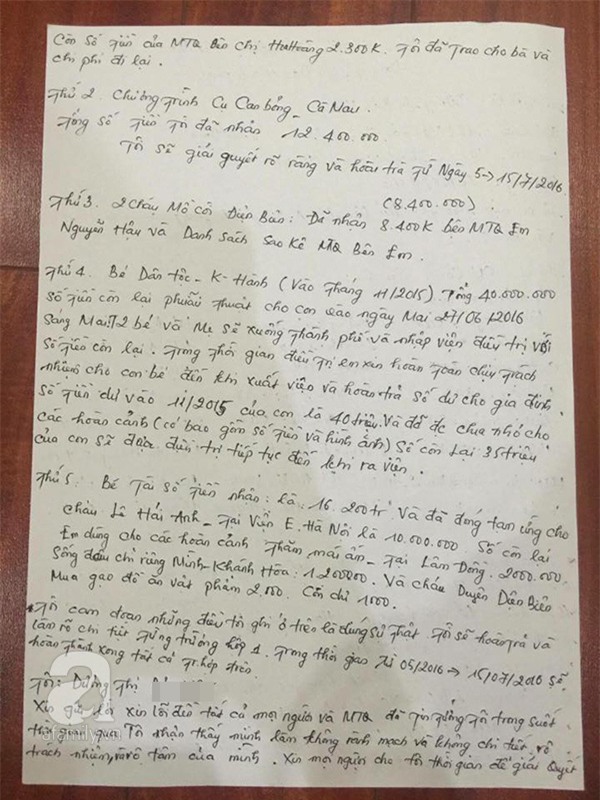 Còn số tiền của MTQ Bên chị HuHoàng 2.300K. Tôi đã trao cho bà và
chi phí đi lại.
Thứ 2. Chương trình Cụ Can bông - Cà Mau.
Tổng số tiền tôi đã nhận 12.400.000
Tôi sẽ giải quyết rõ ràng và hoàn trả từ Ngày 5 -> 15/7/2016
(8.400.000)
Thứ 3. 2 cháu Mồ côi Điện Bàn: Đã nhận 8.400K bên MTQ Em
Nguyễn Hậu và Danh sách Sao Kê MTQ Bên Em.
Thứ 4. Bé Dân tộc - K-Hành (Vào tháng 11/2015) Tổng 40.000.000
số tiền còn lại phẫu thuật cho con vào ngày Mai 27/06/2016
Sáng Mai T2 bé và Mẹ sẽ xuống thành phố và nhập viện điều trị với
số tiền còn lại. Trong thời gian điều trị em xin hoàn toàn chịu trách
nhiệm cho con bé đến khi xuất viện và hoàn trả số dư cho gia đình.
Số tiền dư vào 11/2015 của con là 40 triệu. Và đã đc chia nhỏ cho
các hoàn cảnh (có bao gồm số tiền và hình ảnh) Số còn Lại 35 triệu
của con sẽ được điều trị tiếp tục đến khi ra viện.
Thứ 5. Bé Tài số tiền nhận: là: 16.200tr Và đã đóng tạm ứng cho
cháu Lê Hải Anh - Tại Viện E. Hà Nội là 10.000.000 Số còn lại
Em dùng cho các hoàn cảnh Thăm mái ấm - Tại Lâm Đồng. 2000.000
Sống đâu chỉ riêng Mình - Khánh Hòa: 1.200000. Và cháu Duyên Điện Biên
Mua gạo đồ ăn vật phẩm 2.000. Còn chi 1000.
Tôi cam đoan những điều tôi ghi ở trên là đúng sự thật. Tôi sẽ hoàn trả và
làm rõ chi tiết từng trường hợp 1. Trong thời gian từ 05/2016 -> 15/07/2016 sẽ
hoàn thành xong tất cả tr.hợp trên
Tôi: Dương Thị
Xin gửi lời xin lỗi đến tất cả mọi người và MTQ đã tin tưởng tôi trong suốt
thời gian qua. Tôi nhận thấy mình làm không rành mạch và không chi tiết, rõ
trách nhiệm, và rõ tâm của mình. Xin mọi người cho tôi thời gian để giải quyết
a
afamily.vn